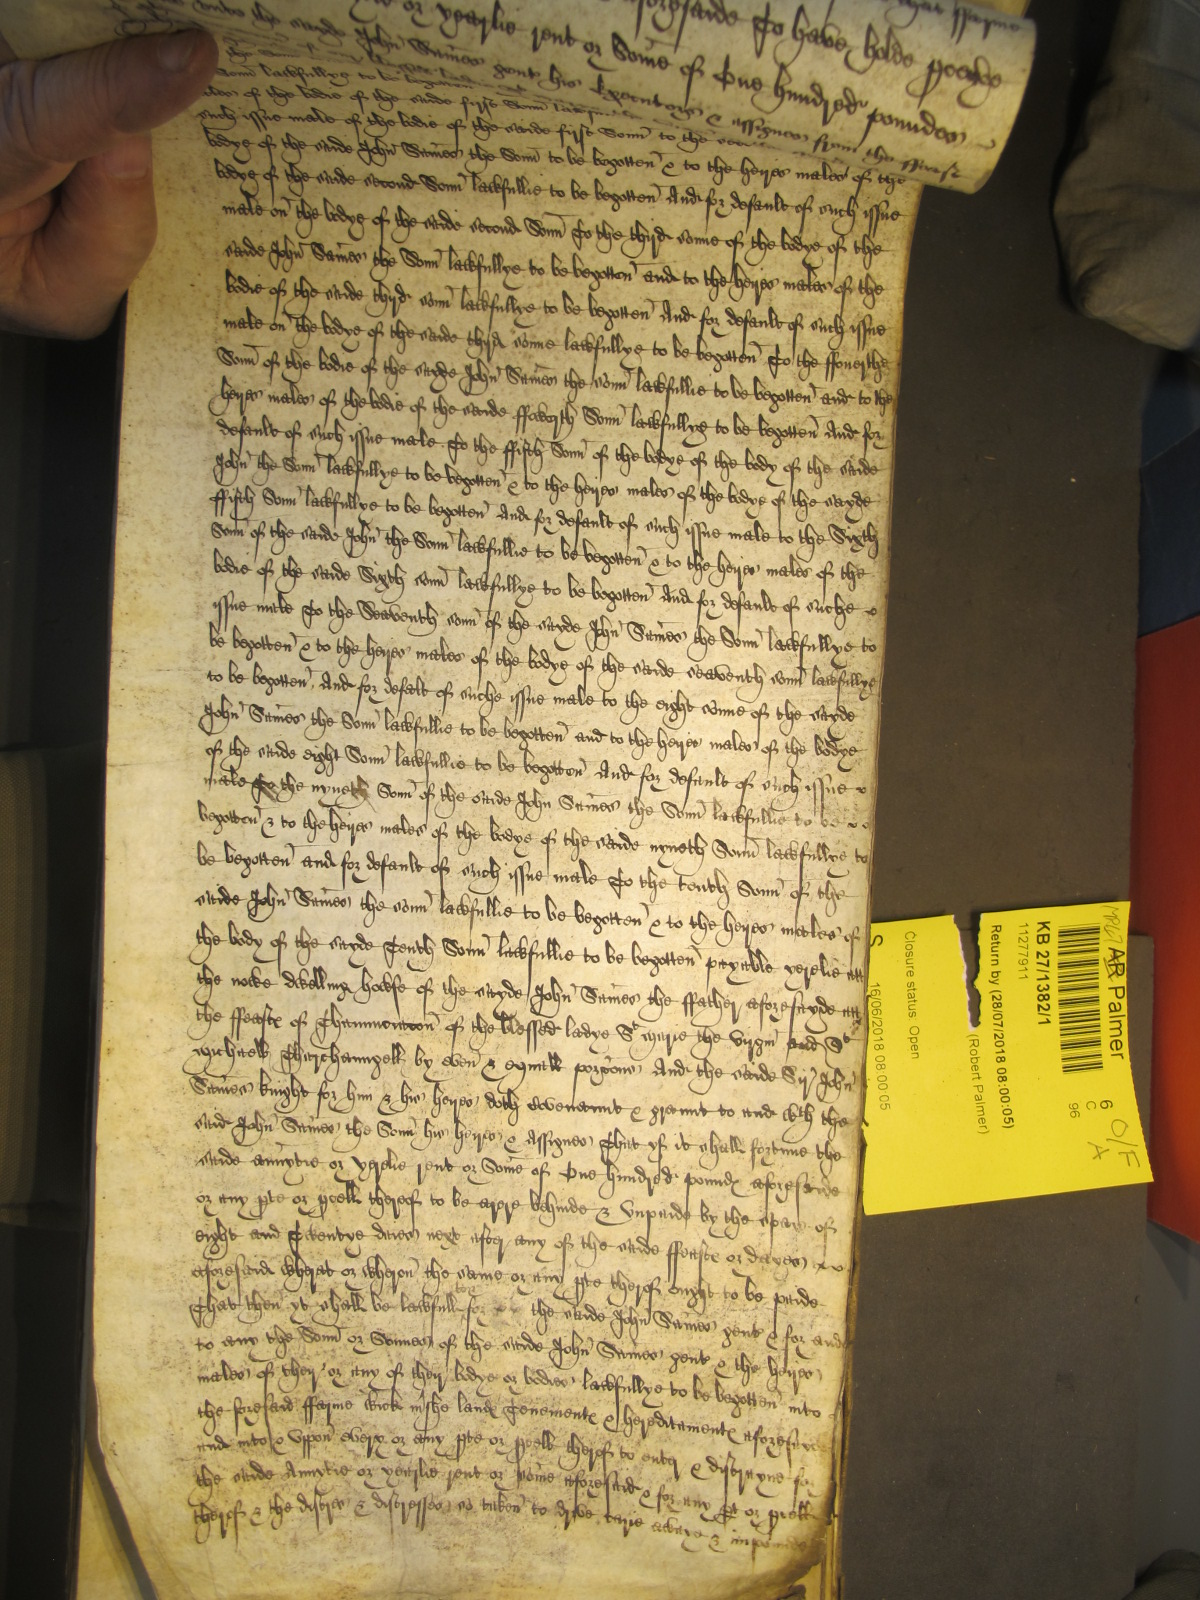 that ffearme
aforesaide To have holde pceave
or yearlie rent or Some of One hundred poundes
unto the saide John Sames gent his Executors & assignes from the ffeaste
Sonn lackfullye to be begotten
of the bodie of the saide first Sonn
such issue male of the bodie of the saide first Sonn to the
bodye of the saide John Sames the Sonn to be begotten & to the heyres males of the
bodye of the saide second Sonn lackfullie to be begotten And for default of such issue
male on the bodye of the saide second Sonn To the thyrd sonne of the bodye of the
saide John Sames the Sonn lackfullye to be begotten and to the heyres males of the
bodie of the saide thyrd sonn lackfullye to be begotten And for default of such issue
male on the bodye of the saide thyrd sonne lackfullye to be begotten To the ffowerthe
Sonn of the bodie of the sayde John Sames the sonn lackfullie to be begotten and to the
heyres males of the bodie of the saide ffoworth Sonn lackfullye to be begotten And for
default of such issue male To the ffifth Sonn of the bodye of the body of the saide
John the Sonn lackfullye to be begotten & to the heyres males of the bodye of the sayde
ffifth Sonn lackfullye to be begotten And for default of such issue male to the Sixth
Sonn of the saide John the Sonn lackfullie to be begotten & to the heyres males of the
bodie of the saide Sixth sonn lackfullye to be begotten And for default of suche
issue male To the Seaventh sonn of the sayde John Sames the Sonn lackfullye to
be begotten & to the heyres males of the bodye of the saide seaventh sonn lackfullye
to be begotten And for defalt of suche issue male to the eight sonne of the sayde
John Sames the Sonn lackfullie to be begotten and to the heyres males of the bodye
of the saide eight Sonn lackfullie to be begotten And for default of such issue
male To the nyneth Sonn of the saide John Sames the Sonn lackfullie to be
begotten & to the heyres males of the bodye of the saide nyneth Sonn lackfullye to
be begotten and for default of such issue male To the tenth Sonn of the
saide John Sames the sonn lackfullie to be begotten & to the heyres males of
the body of the sayde Tenth Sonn lackfullie to be begotten payable yerelie att
the nowe dwelling howse of the sayde John Sames the ffather aforesayde att
the ffeaste of Thannunciacion of the blessed ladye St marie the virgin and St
michaell Tharchanngell by even & equall porcons And the saide Syr John
Sames knight for him & his heyres doth covenaunt & graunt to and wth the
said John Sames the Sonn his heyres & Assignes That yf it shall fortune the
saide annytie or yerelie rent or Some of One hundred pounds aforesaide
or any pte or pcell thereof to be arere behinde & unpaide by the space of
eight and Twentye daies next after any of the saide ffeaste or dayes
aforesaid wherat or wheron the same or any pte therof ought to be paide
That then yt shall be lackfull to & for the saide John Sames gent & for and
to any the Sonn or Sonnes of the saide John Sames gent & the heyres
males of their or any of their bodye or bodies lackfullye to be begotten into
the foresaid ffarme wick mshe lands Tenements & hereditaments aforesayd
and into & uppon every or any pte or pcell therof to enter & distrayne for
the saide Annytie or yearlie rent or some aforesaid & for any pt or pcell
therof & the distres & distresses so taken to drive carie awaye & impounde
AR Palmer
KB 27/1382/1
11277911
Return by (28/07/2018 08:00:05)
(Robert Palmer)
Closure status: Open
16/06/2018 08:00:05
S
6
C
96
O/F
A